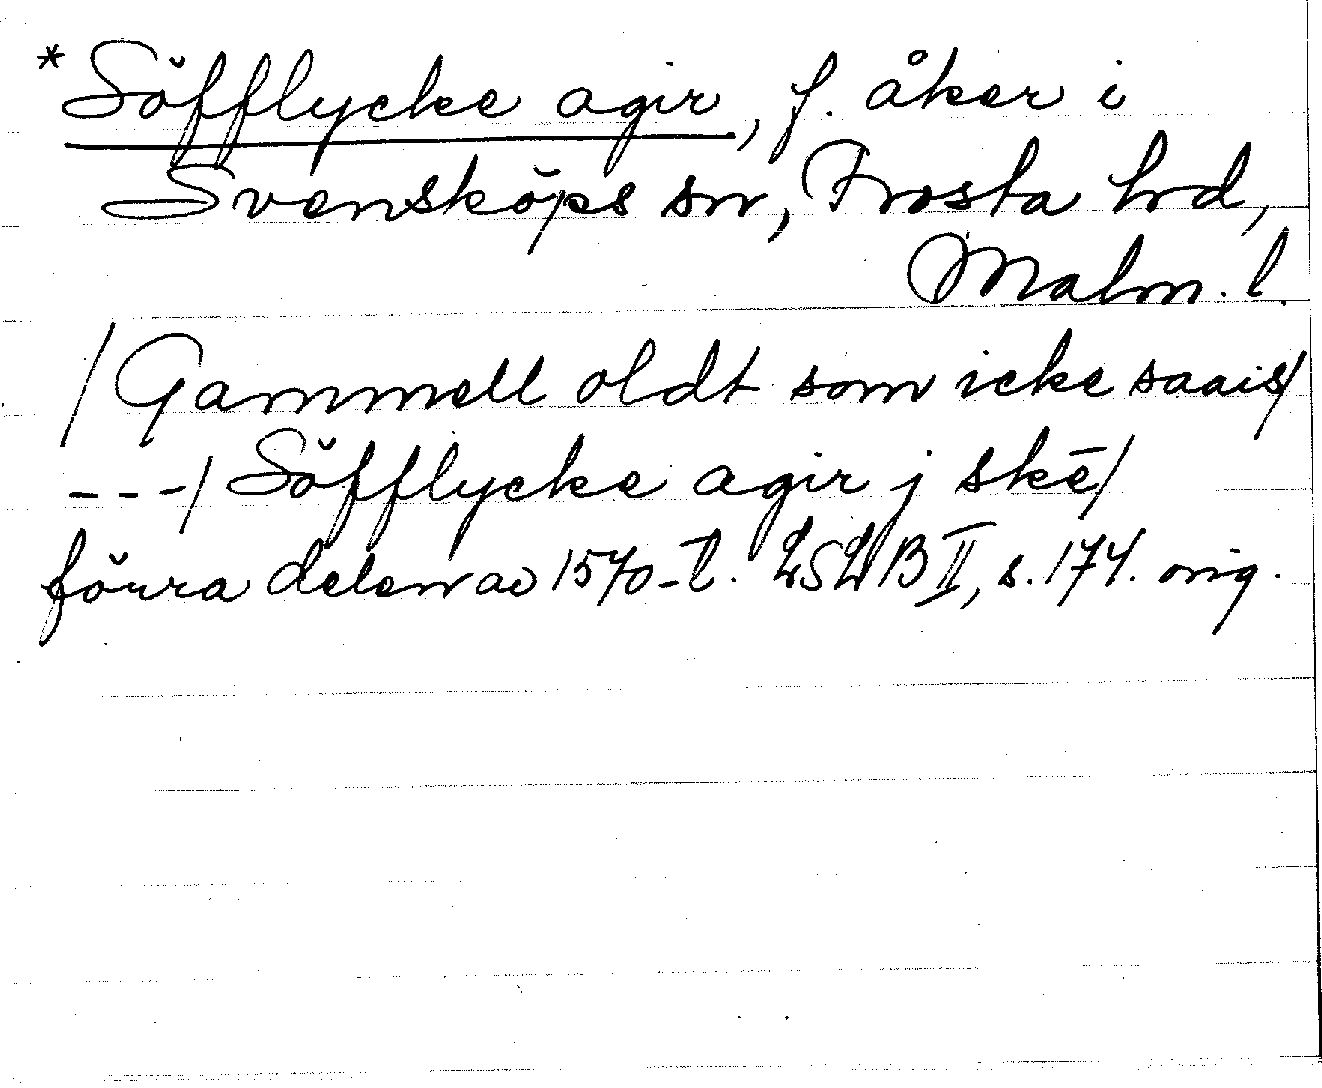 * Söfflycke agir, f. åker i
Svensköps sn, Frosta hrd,
Malm. l.
/Gammell oldt som icke saais/
---/Söfflycke agir j skē/
förra delen av 1570-t. LSLB II, s. 174. orig.